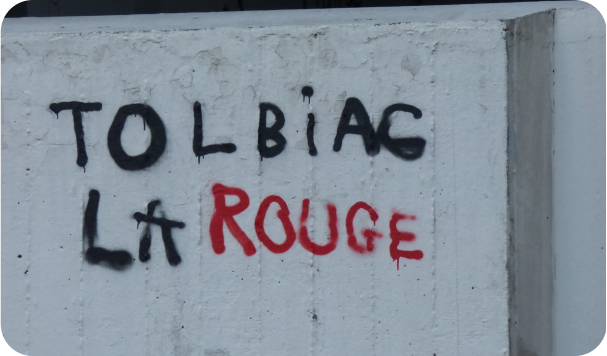 TOLBiAC
LA ROUGE